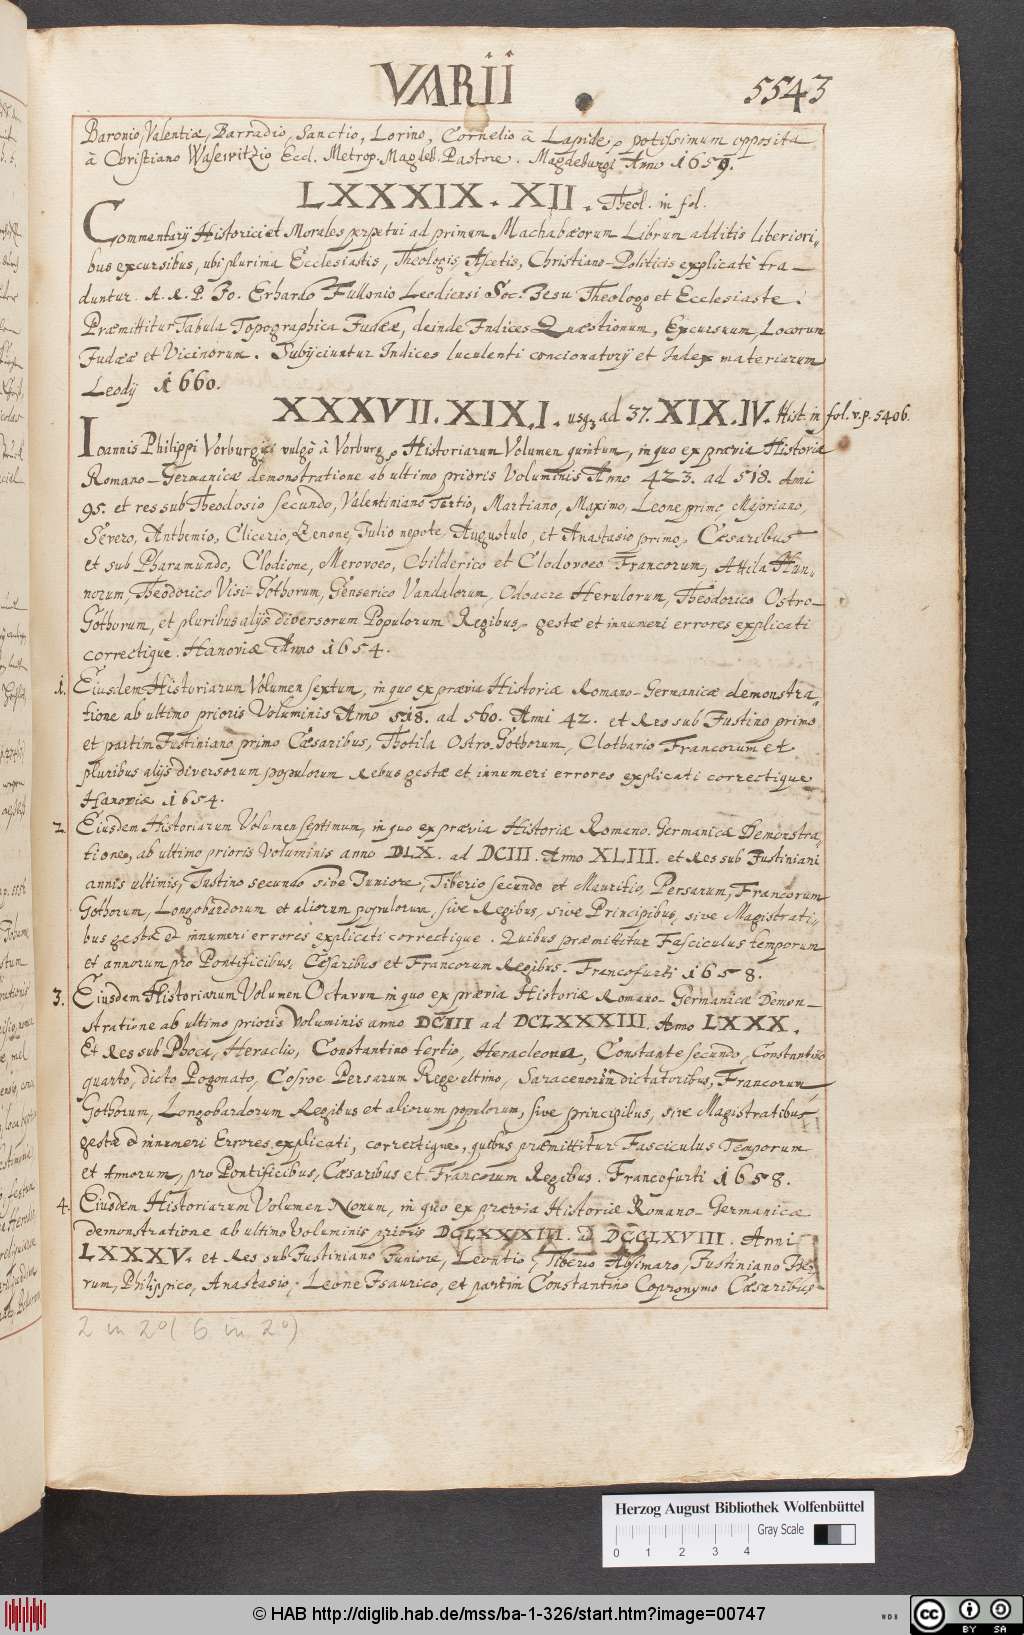 VARII
5543
Baronio, Valentiæ, Barradio, Sanctio, Lorino, Cornelio à Lapide, potissimum opposita
à Christiano Wasewitzio Eccl. Metrop. Magdeb. Pastore. Magdeburgi Anno 1659.
LXXXIX. XII. Theol. in fol.
Commentarij Historici et Morales perpetui ad primum Machabæorum Librum additis liberiori„
bus excursibus, ubi plurima Ecclesiastis, Theologis, Ascetis, Christiano-Politicis explicatè tra-
duntur. A. R. P. Jo. Erhardo Fullonio Leodiensi Soc. Jesu Theologo et Ecclesiaste.
Præmittitur Tabula Topographica Judææ, deinde Indices Quæstionum, Excursuum, Locorum
Judææ et Vicinorum. Subijciuntur Indices luculenti concionatorij et Index materiarum
Leodij 1660.
XXXVII. XIX. I. usq3 ad 37. XIX. IV. Hist. in fol. v. p. 5406.
Ioannis Philippi Vorburgijs vulgò à Vorburg, Historiarum Volumen quintum, in quo ex prævia Historiæ
Romano-Germanicæ demonstratione ab ultimo prioris Voluminis Anno 423. ad 518. Anni
95. et res sub Theodosio secundo, Valentiniano Tertio, Martiano, Maximo, Leone primo Majoriano,
Severo, Anthemio, Clicerio, Zenone, Julio nepote, Augustulo, et Anastasio primo, Cæsaribus
et sub Pharamundo, Clodione, Meroveo, Childerico et Clodoveo Francorum, Attila Hun„
norum, Theodorico Visi-Gothorum, Genserico Vandalorum, Odoacre Herulorum, Theodorico Ostro-
Gothorum, et pluribus alijs diversorum Populorum Regibus, gestæ et innumeri errores explicati
correctique. Hanoviæ Anno 1654.
1. Eiusdem Historiarum Volumen sextum, in quo ex prævia Historiæ Romano-Germanicæ demonstra„
tione ab ultimo prioris Voluminis Anno 518. ad 560. Anni 42. et Res sub Justino primo
et partim Justiniano primo Cæsaribus, Thotila Ostro Gothorum, Clothario Francorum et
pluribus alijs diversorum populorum Rebus gestæ et innumeri errores explicati correctique
Hanoviæ 1654.
2. Eiusdem Historiarum Volumen septimum, in quo ex prævia Historiæ Romano. Germanicæ Demonstra„
tione, ab ultimo prioris Voluminis anno DLX. ad DCIII. Anno XLIII. et Res sub Justiniani
annis ultimis, Justino secundo sive Juniore, Tiberio secundo et Mauritio, Persarum, Francorum
Gothorum, Longobardorum et aliorum populorum, sive Regibus, sive Principibus, sive Magistrati„
bus gestæ et innumeri errores explicati correctique. Quibus præmittitur Fasciculus temporum
et annorum pro Pontificibus, Cæsaribus et Francorum Regibus. Francofurti 1658.
3. Eiusdem Historiarum Volumen Octavum in quo ex prævia Historiæ Romano-Germanicæ Demon-
stratione ab ultimo prioris Voluminis anno DCIII ad DCLXXXIII. Anno LXXX.
Et Res sub Phoca, Heraclio, Constantino tertio, Heracleona, Constante secundo, Constantino
quarto, dicto Pogonato, Cosroe Persarum Rege ultimo, Saracenorum dictatoribus, Francorum
Gothorum, Longobardorum Regibus et aliorum populorum, sive principibus, sive Magistratibus
gestæ et innumeri Errores explicati, correctique, quibus præmittitur Fasciculus Temporum
et Annorum, pro Pontificibus, Cæsaribus et Francorum Regibus. Francofurti 1658.
4. Eiusdem Historiarum Volumen Nonum, in quo ex prævia Historiæ Romano-Germanicæ
demonstratione ab ultimo Voluminis prioris DCLXXXIII. ad DCCLXVIII. Anni
LXXXV. et Res sub Justiniano Juniore, Leontio, Tiberio Absimaro, Justiniano Ite-
rum, Philippico, Anastasio, Leone Isaurico, et partim Constantino Copronymo Cæsaribus
2 in 2° (6 in 2°)
Herzog August Bibliothek Wolfenbüttel
Gray Scale
0 1 2 3 4
© HAB http://diglib.hab.de/mss/ba-1-326/start.htm?image=00747
WDB
cc BY SA